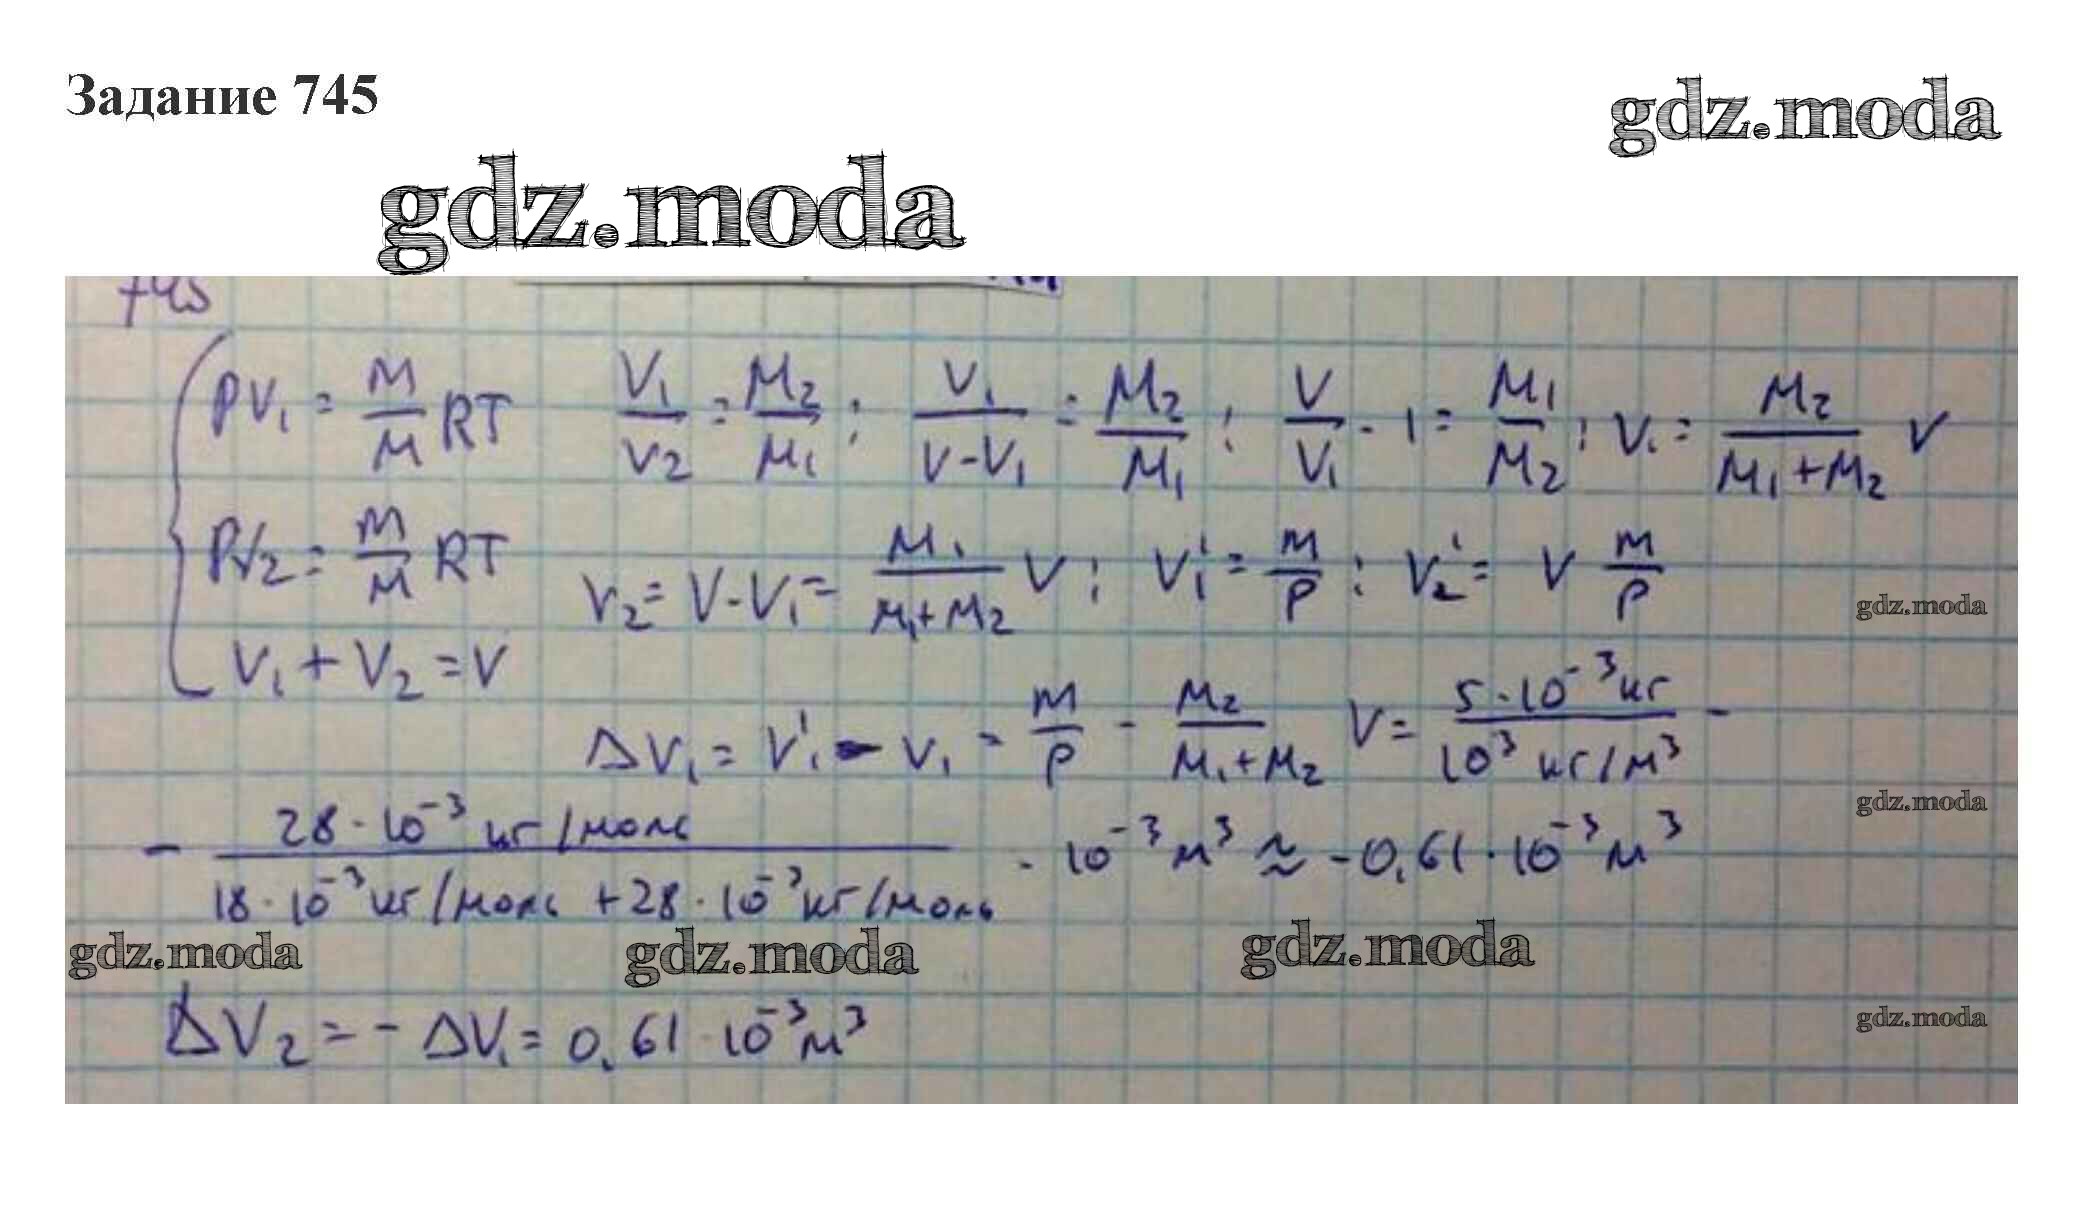 Задание 745
gdz.moda
gdz.moda
745
PV₁ = m/M RT   V₁/V₂ = M₂/M₁ ; V₁/(V-V₁) = M₂/M₁ ; V/V₁ - 1 = M₁/M₂ ; V₁ = M₂/(M₁+M₂) V
PV₂ = m/M RT   V₂ = V-V₁ = M₁/(M₁+M₂) V ; V₁' = m/ρ ; V₂' = V m/ρ
gdz.moda
V₁ + V₂ = V
ΔV₁ = V₁' - V₁ = m/ρ - M₂/(M₁+M₂) V = 5·10⁻³ кг/10³ кг/м³ -
gdz.moda
- 28·10⁻³ кг/моль/(18·10⁻³ кг/моль + 28·10⁻³ кг/моль) · 10⁻³ м³ ≈ -0,61·10⁻³ м³
gdz.moda
gdz.moda
gdz.moda
ΔV₂ = - ΔV₁ = 0,61·10⁻³ м³
gdz.moda